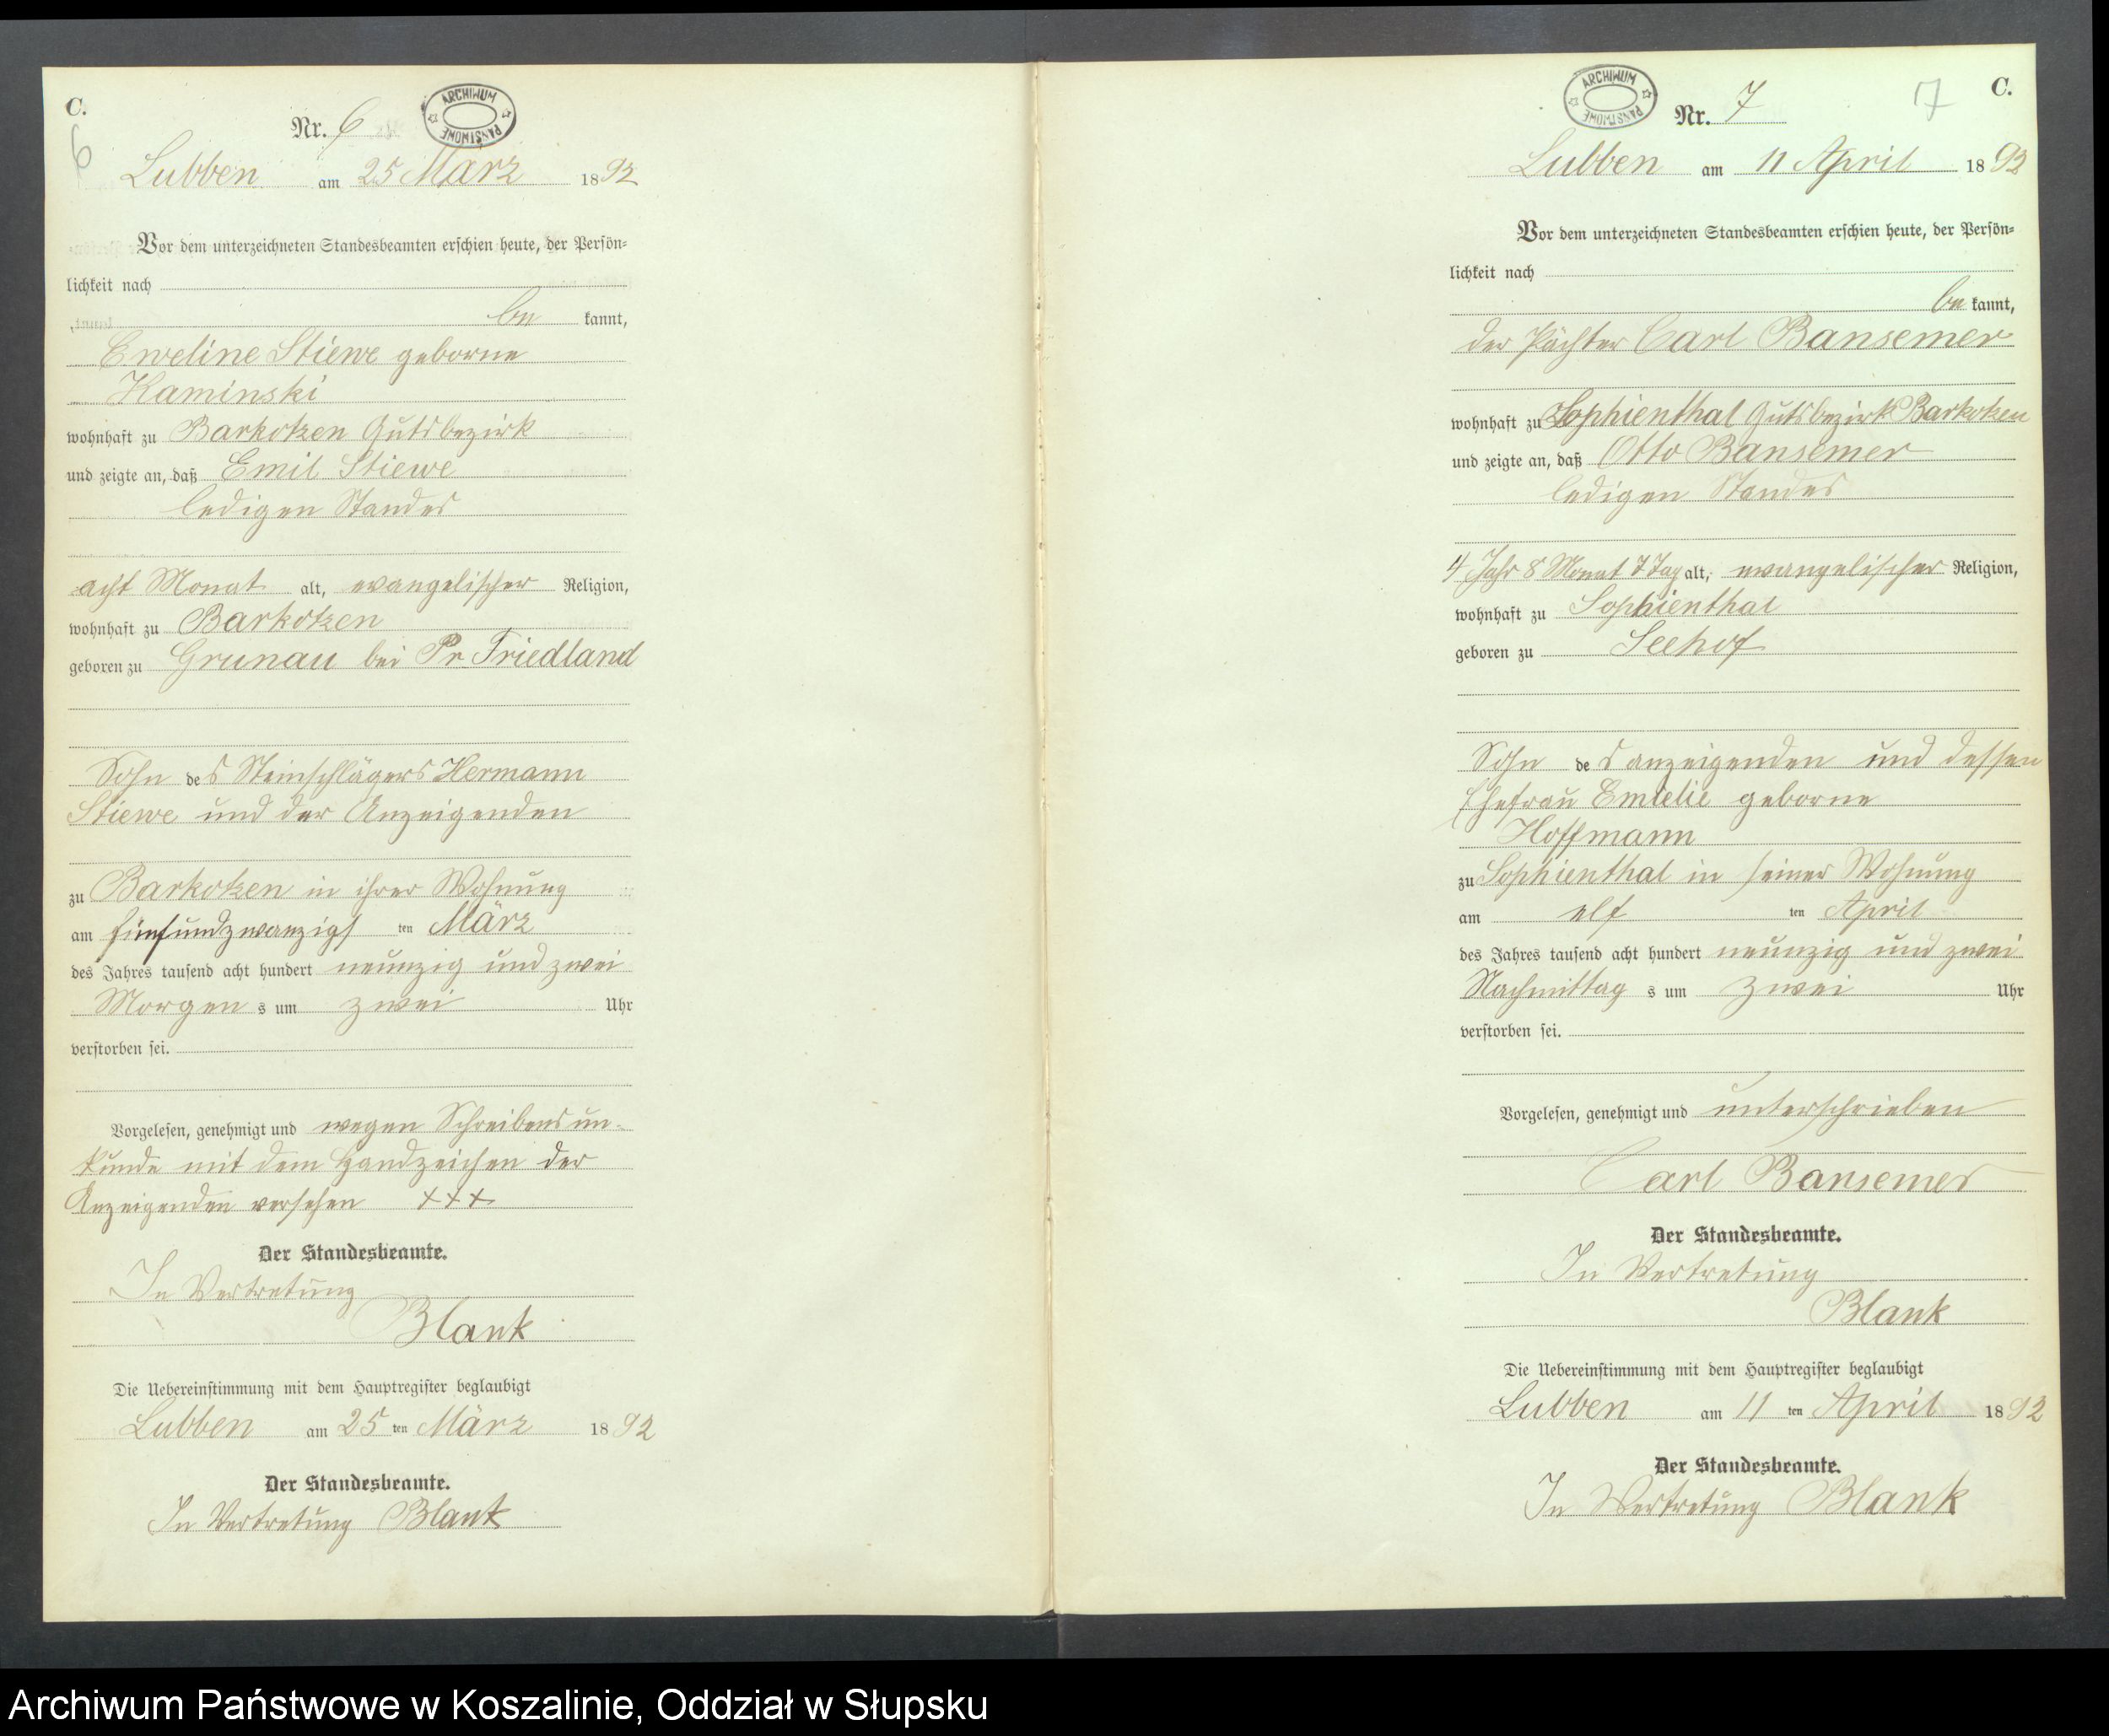 C.
6
Nr. 6
ARCHIWUM PAŃSTWOWE
Lubben am 25 März 1892
Vor dem unterzeichneten Standesbeamten erschien heute, der Persön=
lichkeit nach
be kannt,
Eweline Stiewe geborne
Kaminski
wohnhaft zu Barkotzen Gutsbezirk
und zeigte an, daß Emil Stiewe
ledigen Standes
acht Monat alt, evangelischer Religion,
wohnhaft zu Barkotzen
geboren zu Grunau bei Pr Friedland
Sohn des Steinschlägers Hermann
Stiewe und der Anzeigenden
zu Barkotzen in ihrer Wohnung
am fünfundzwanzigs ten März
des Jahres tausend acht hundert neunzig und zwei
Morgen s um zwei Uhr
verstorben sei.
Vorgelesen, genehmigt und wegen Schreibensun-
kunde mit dem Handzeichen der
Anzeigenden versehen +++
Der Standesbeamte.
In Vertretung
Blank
Die Uebereinstimmung mit dem Hauptregister beglaubigt
Lubben am 25 ten März 1892
Der Standesbeamte.
In Vertretung Blank
ARCHIWUM PAŃSTWOWE
Nr. 7
7
C.
Lubben am 11 April 1892
Vor dem unterzeichneten Standesbeamten erschien heute, der Persön=
lichkeit nach
be kannt,
der Pächter Carl Bansemer
wohnhaft zu Sophienthal Gutsbezirk Barkotzen
und zeigte an, daß Otto Bansemer
ledigen Standes
4 Jahr 8 Monat 7 Tag alt, evangelischer Religion,
wohnhaft zu Sophienthal
geboren zu Seehof
Sohn des anzeigenden und dessen
Ehefrau Emielie geborne
Hoffmann
zu Sophienthal in seiner Wohnung
am elf ten April
des Jahres tausend acht hundert neunzig und zwei
Nachmittag s um zwei Uhr
verstorben sei.
Vorgelesen, genehmigt und unterschrieben
Carl Bansemer
Der Standesbeamte.
In Vertretung
Blank
Die Uebereinstimmung mit dem Hauptregister beglaubigt
Lubben am 11 ten April 1892
Der Standesbeamte.
In Vertretung Blank
Archiwum Państwowe w Koszalinie, Oddział w Słupsku